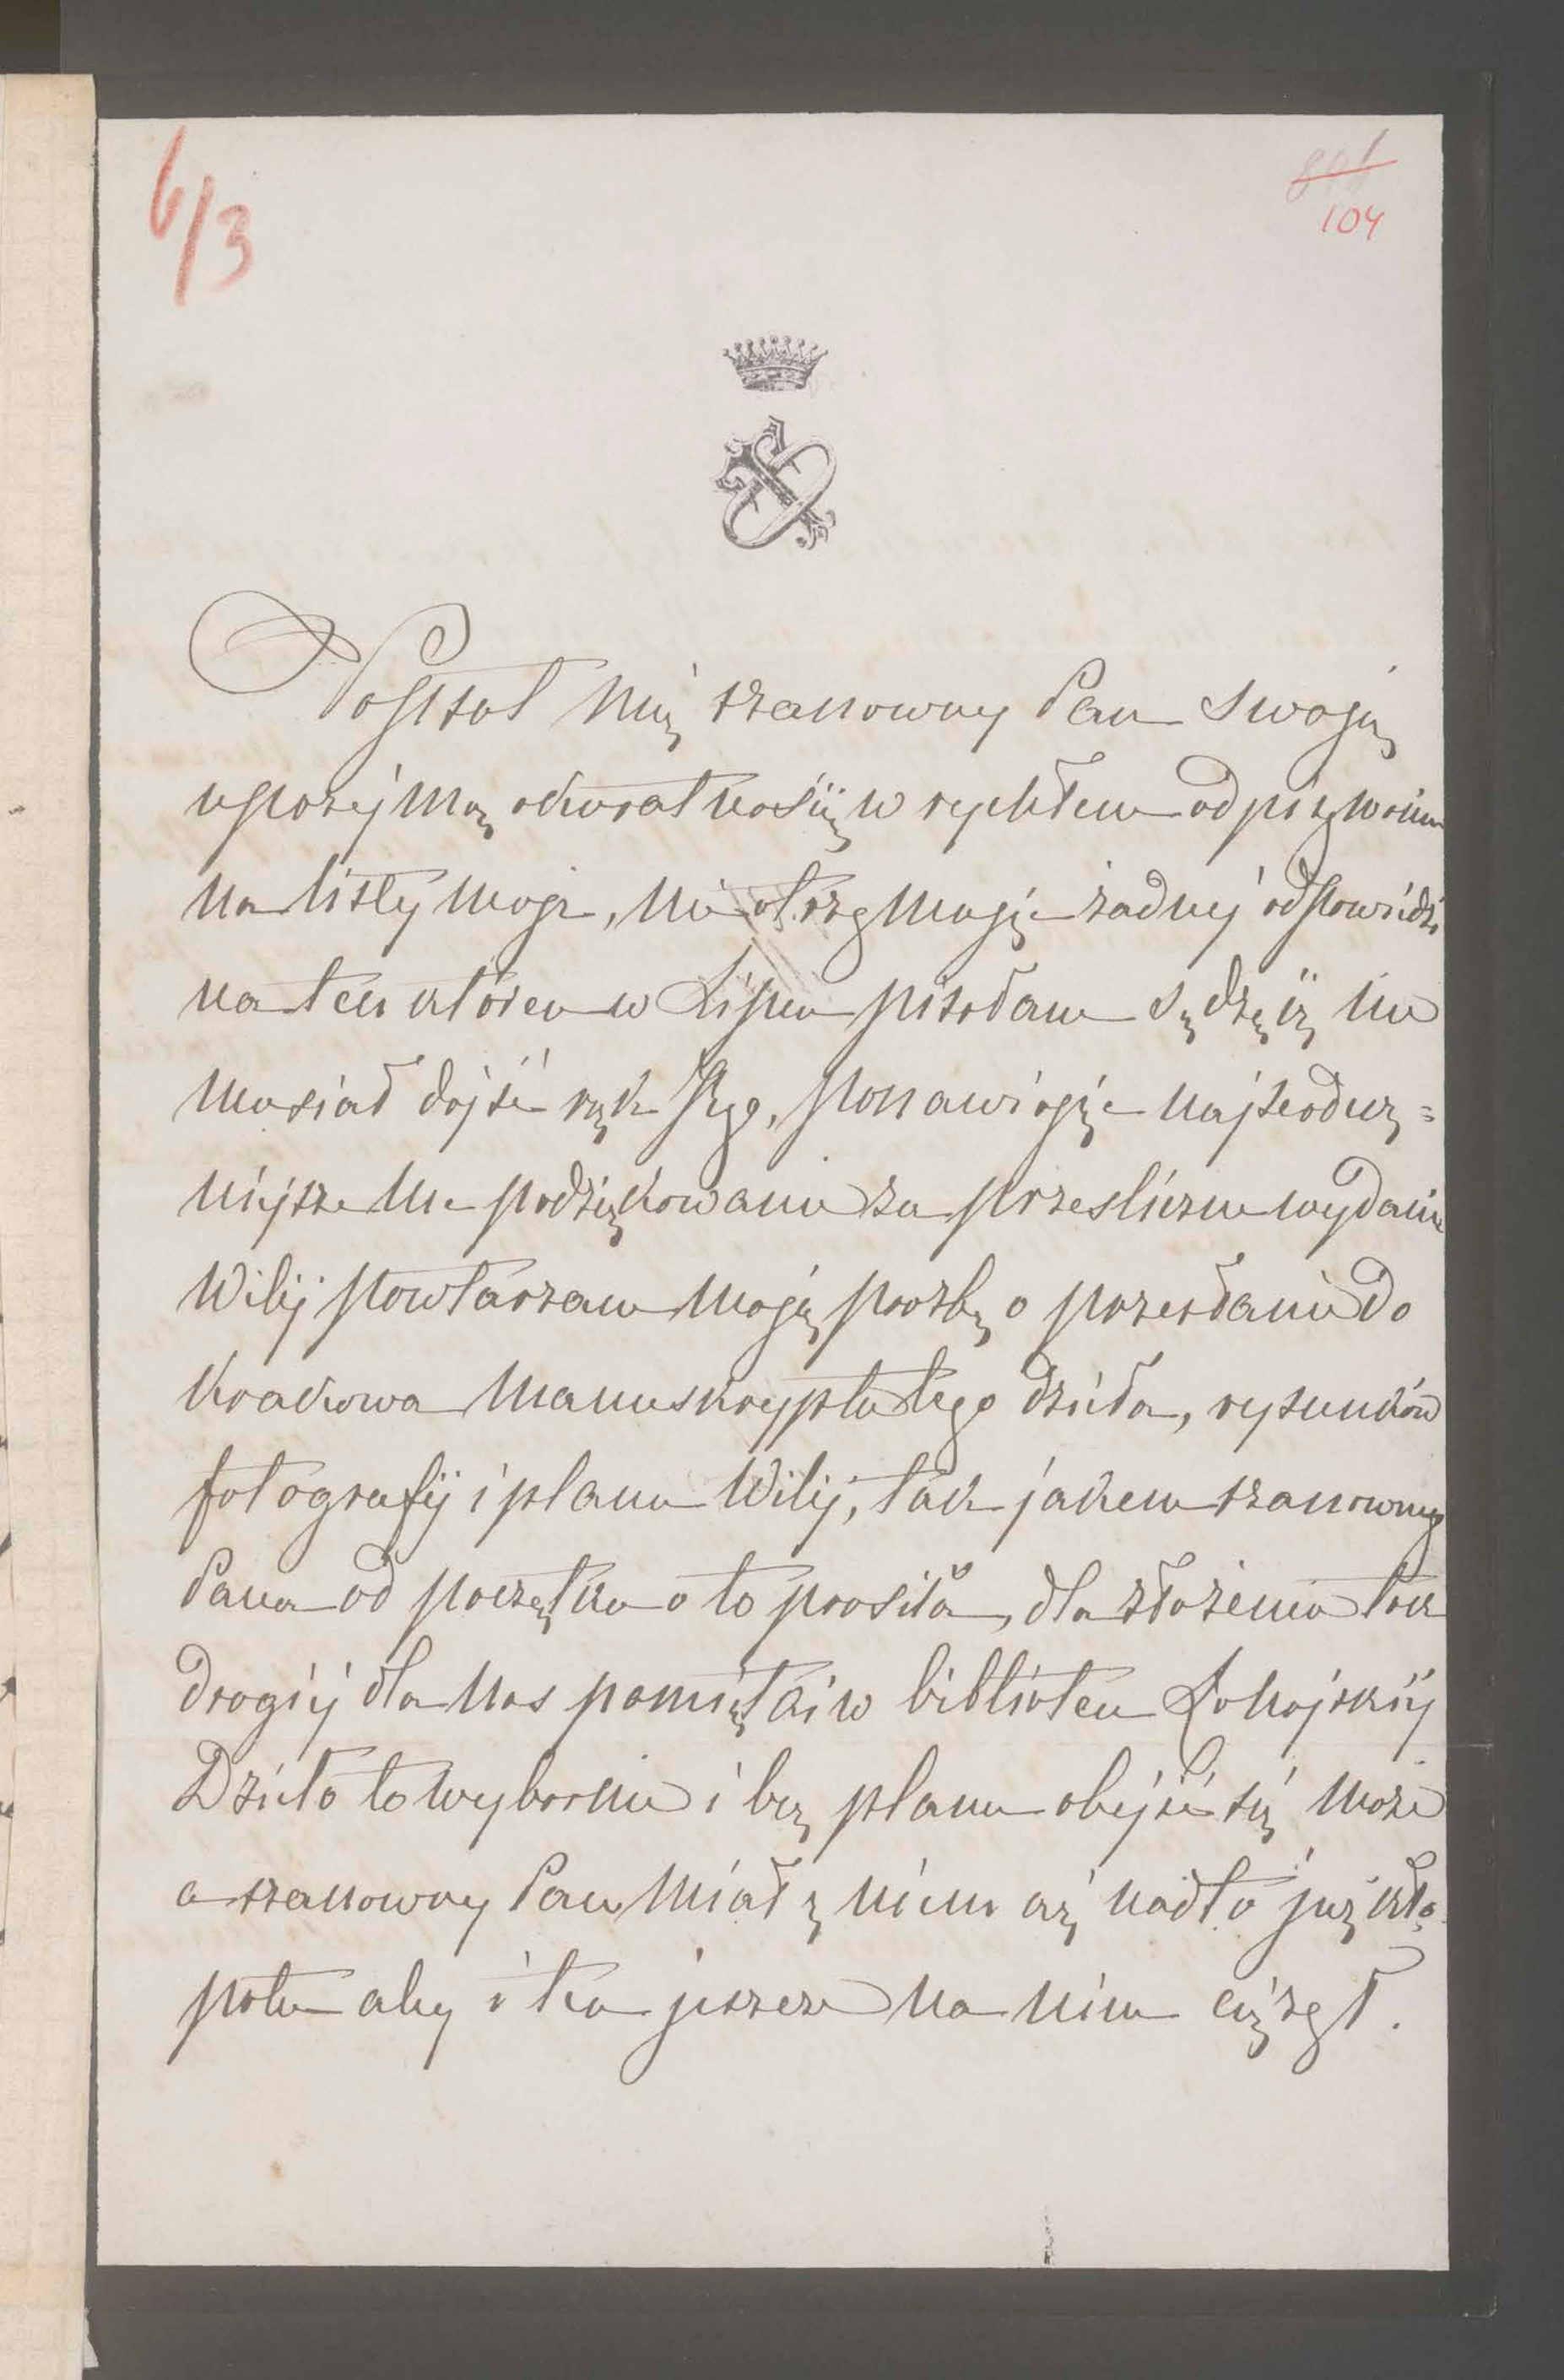 6/3
104
Popsuł mię szanowny Pan swoją
uprzejmą akuratnością w rychłem odpisywaniu
na listy moje, nie otrzymując żadnej odpowiedzi
na ten którem w Lipcu pisałam sądzę iż nie
musiał dojść rąk Jego, ponawiając najserdecz=
niejsze me podziękowanie za prześliczne wydanie
Wilij powtarzam moją prozbę o przesłanie do
Krakowa manuskryptu tego dzieła, rysunków
fotografij i planu Wilij, tak jakem szanownego
Pana od początku o to prosiła, dla złożenia tak
drogiej dla nas pamiątki w bibliotece Łohojskiej
Dzieło to wybornie i bez planu obejść się może
a szanowny Pan miał z niem aż nadto już kło-
potu aby i ten jeszcze na nim ciężył.